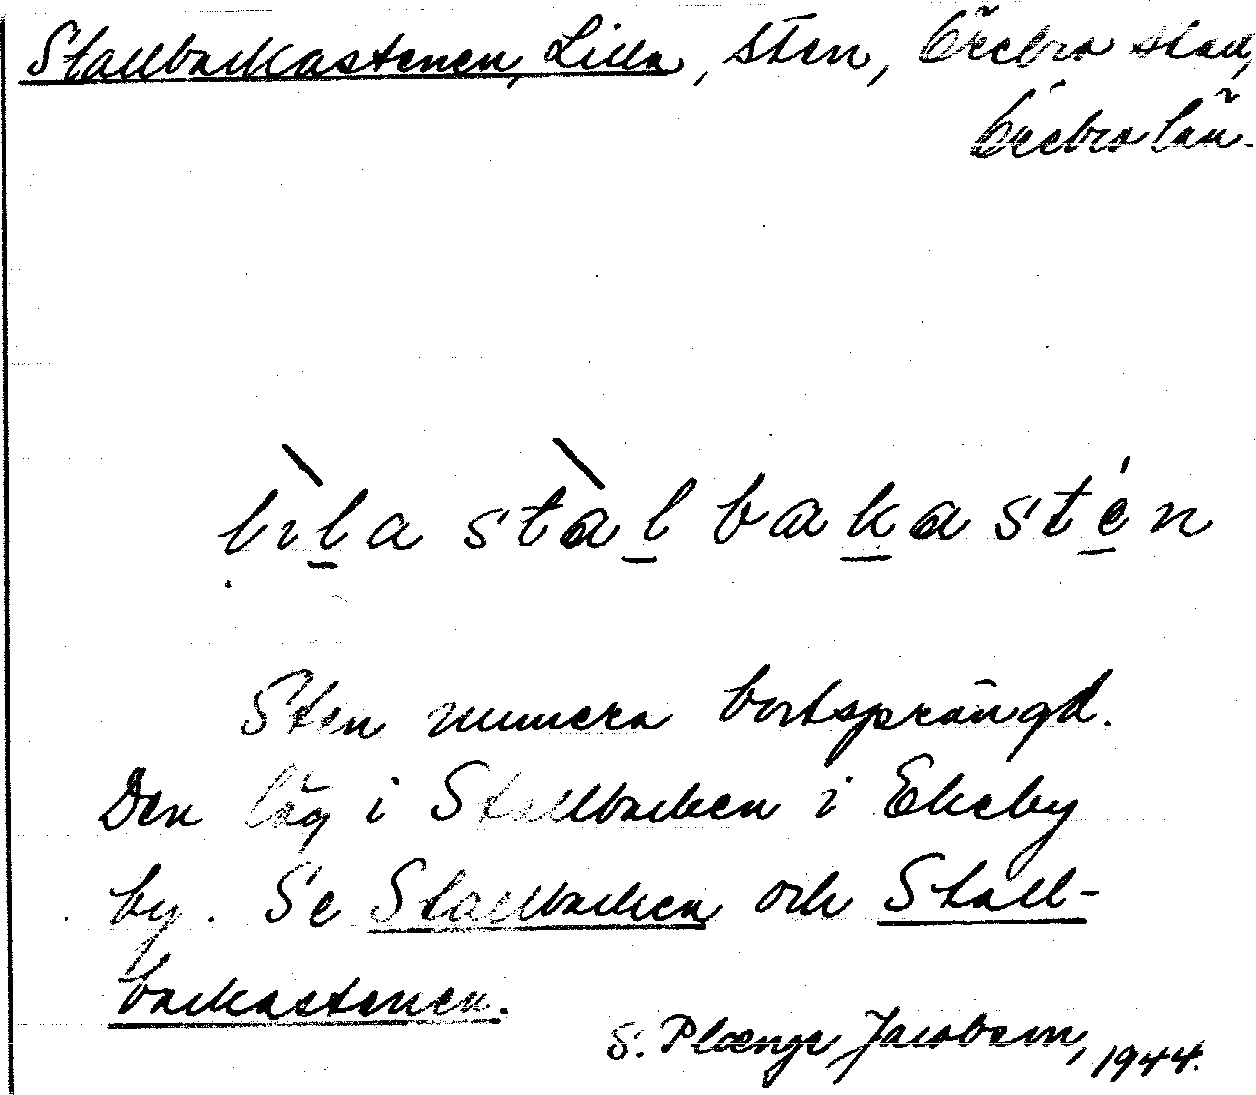 Stallbackastenen, Lilla, sten, Örebro stad,
Örebro län.
lìla stàlbakastén
Sten numera bortsprängd.
Den låg i Stallbacken i Ekeby
by. Se Stallbacken och Stall-
backastenen.
S. Plœnge Jacobson, 1944.